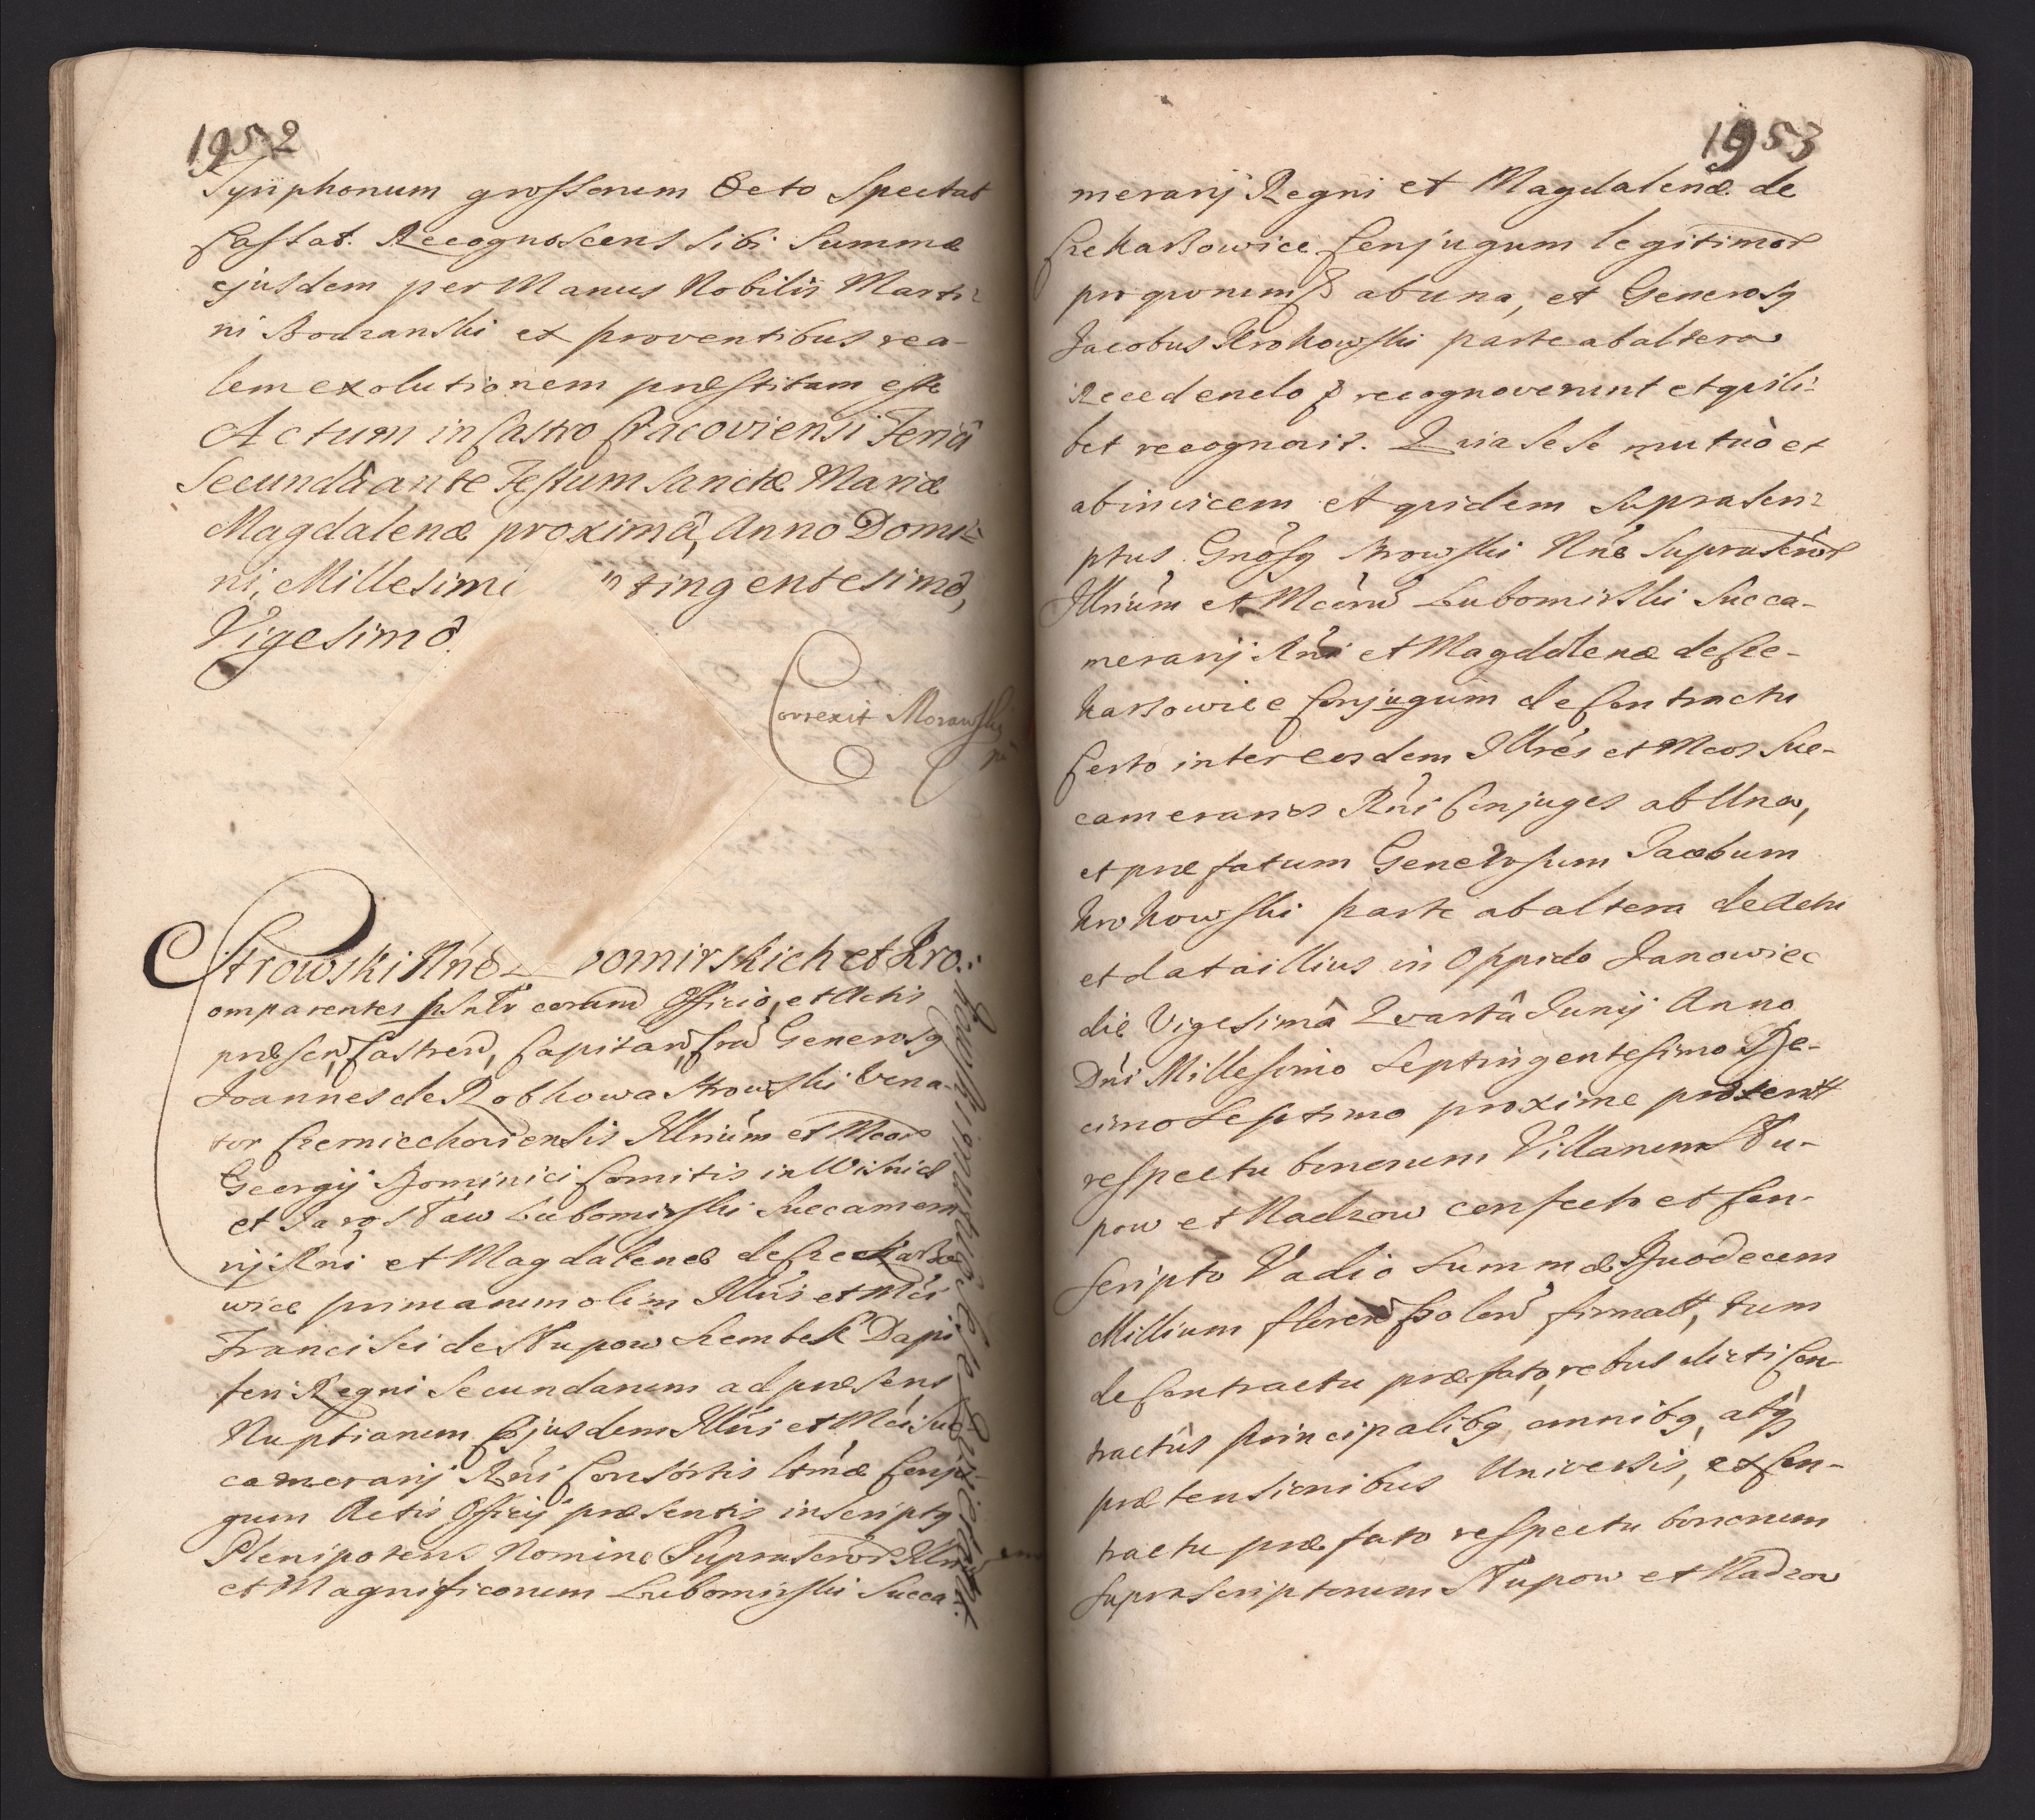 1952
Tynphonum grossorum Octo Spectat
Cassat. Recognoscens Sibi Summæ
ejusdem per Manus Nobilis Marti-
ni Bodzanski ex proventibus rea-
lem exolutionem præstitam esse
Actum in Castro Cracoviensi Feriâ
Secundâ ante Festum Sanctæ Mariæ
Magdalenæ proximâ, Anno Domi=
ni, Millesimo tingentesimô,
Vigesimô.
Correxit Morawski
Strowski Nnõ omirskich et Kro:
kowski invicem se Quietant.
Comparentes psntr coram Officio, et Actis
præsen, Castren, Capitan, Crac Generosq
Joannes de Robkowa Strowski Vena-
tor Czerniechoviensis Illrium et Mcor
Georgij Dominici Comitis in Wisnicz
et Jarosław Lubomirski Succamera
rij Rñi et Magdalenæ de Czekarzo
wice primarum olim Illris et Mci
Francisci de Słupow Szembek Dapi
feri Regni Secundarum ad præsens
Nuptiarum Ejusdem Illris et Mci Suc
camerarij Rñi Consortis ltmæ Conju
gum Actis Officij præsentis inscriptq
Plenipotens Nomine Suprascror Illri
et Magnificorum Lubomirski Succa
1953
merarij Regni et Magdalenæ de
Czekarzowice Conjugum legitimor
pro quorum ab una, et Generosq
Jacobus Krokowski parte ab altera
Recedendo recognoverunt et quili-
bet recognovit. Quia se se mutuò et
ab invicem et quidem Suprascri-
ptus Gnosq Strowski Nñe Suprascror
Illrium et Mcorũ Lubomirski Succa-
merarij Rñi et Magdalenæ de Cze-
karzowice Conjugum de Contractu
Certo inter eosdem Illres et Mcos Suc-
camerarios Rñi Conjuges ab Una,
et præfatum Generosum Jacobum
Krokowski parte ab altera de Actu
et data illius in Oppido Janowiec
die Vigesimâ Quartâ Junij Anno
Dñi Millesimo Septingentesimo De-
cimo Septimo proxime præterit
respectu bonorum Villarum Słu-
pow et Nadzow confecto et Con-
scripto Vadio Summæ Duodecem
Millium floren Polon firmatt, tum
de Contractu præfato, rebus dicti Con-
tractûs principalibq omnibq, atq
prætensionibus Universis, ex Con-
tractu præfato respectu bonorum
Suprascriptorum Słupow et Nadzow